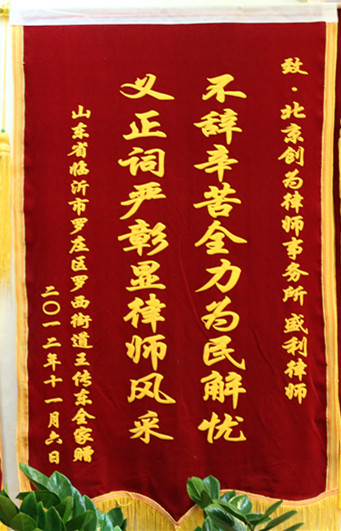 致·北京创为律师事务所 盛利律师
不辞辛苦全力为民解忧
义正词严彰显律师风采
山东省临沂市罗庄区罗西街道王传东全家赠
二〇一二年十一月六日